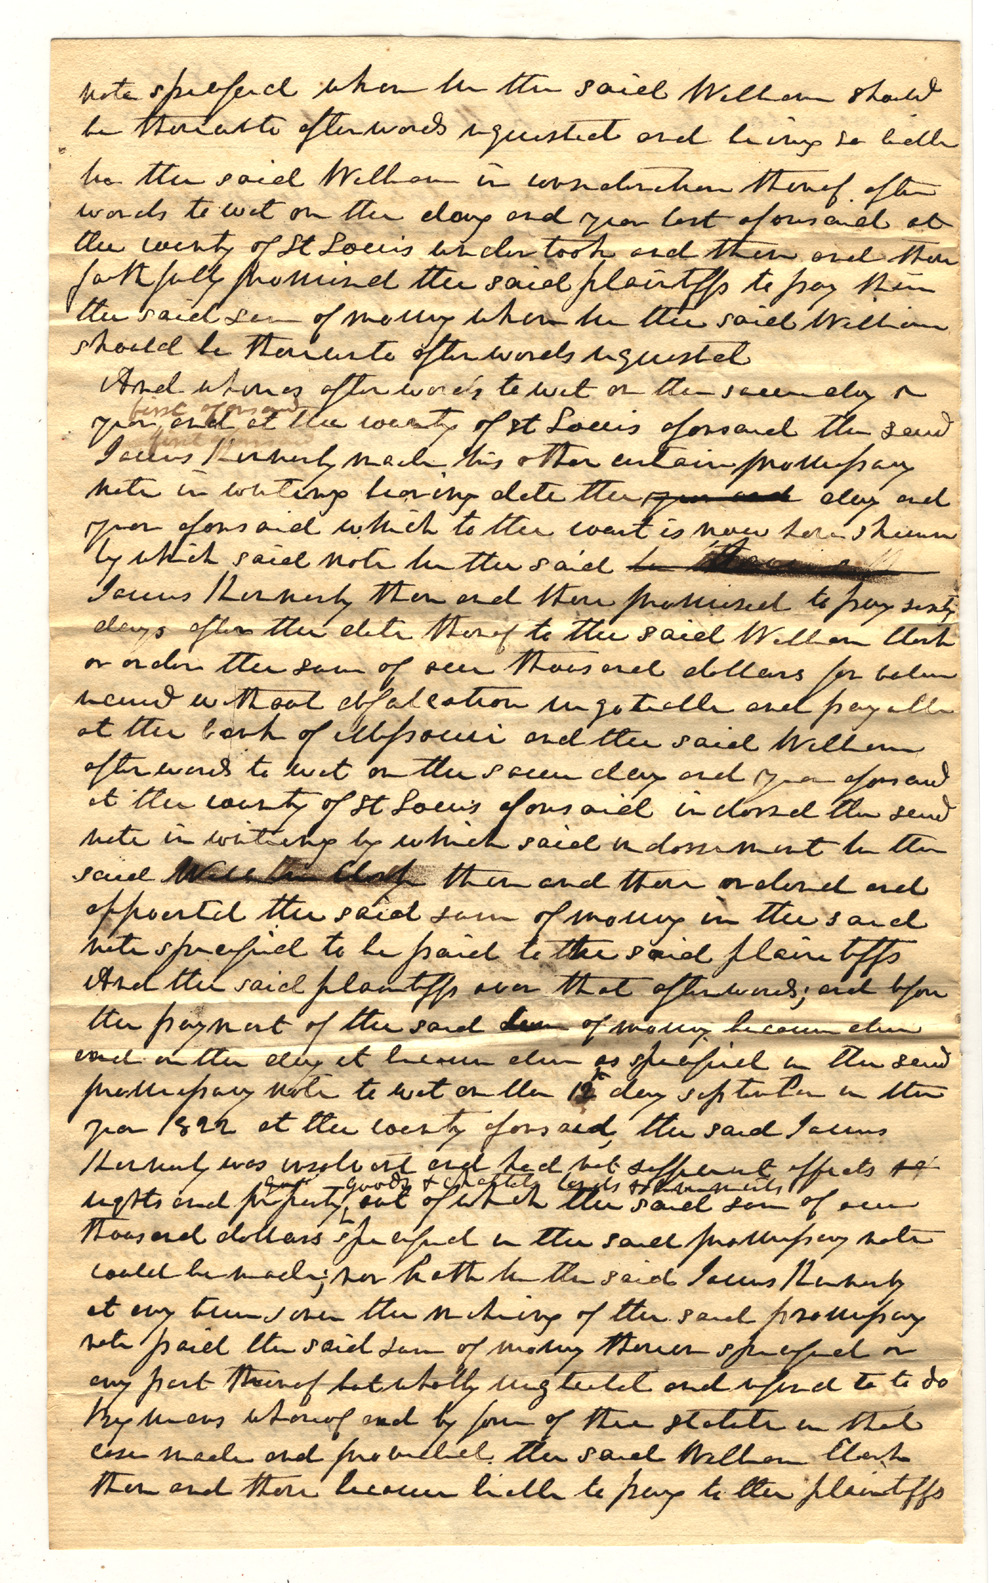 note specified when he the said William should
be thereunto afterwards requested and being so liable
he the said William in consideration thereof after
wards to wit on the day and year last aforesaid at
the county of St Louis undertook and then and there
faithfully promised the said plaintiffs to pay them
the said sum of money when he the said William
should be thereunto afterwards requested
And whereas afterwards to wit on the same day &
first aforesaid
year and at the county of St Louis aforesaid the said
James Kennerly made his other certain promissory
note in writing bearing date the year and day and
year aforesaid which to the court is now here shewn
by which said note he the said
James Kennerly then and there promised to pay sixty
days after the date thereof to the said William Clark
or order the sum of one thousand dollars for value
received without defalcation negotiable and payable
at the bank of Missouri and the said William
afterwards to wit on the same day and year aforesaid
at the county of St Louis aforesaid indorsed the said
note in writing by which said indorsement he the
said William Clark then and there ordered and
appointed the said sum of money in the said
note specified to be paid to the said plaintiffs
And the said plaintiffs aver that afterwards; and before
the payment of the said sum of money became due
and on the day it became due as specified in the said
promissory note to wit on the 12th day september in the
year 1822 at the county aforesaid, the said James
Kennerly was insolvent and had not sufficient effects
goods & chattels lands & tenements
rights and property out of which the said sum of one
thousand dollars specified in the said promissory note
could be made; nor hath he the said James Kennerly
at any time since the making of the said promissory
note paid the said sum of money therein specified or
any part thereof but wholly neglected and refused to to do
By means whereof and by force of the statute in that
case made and provided, the said William Clark
then and there became liable to pay to the plaintiffs